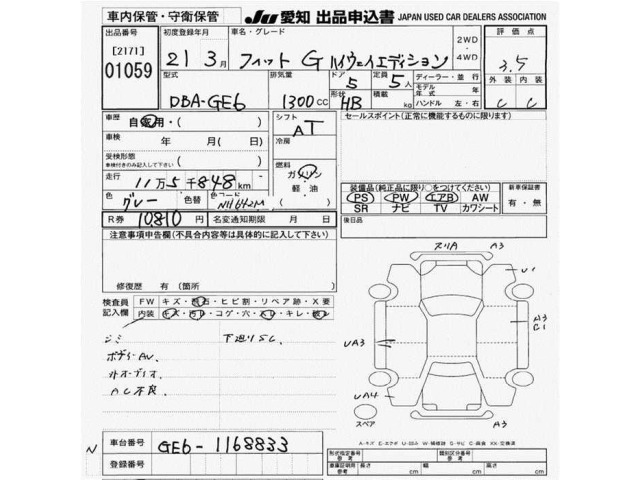 車内保管・守衛保管 JU 愛知 出品申込書 JAPAN USED CAR DEALERS ASSOCIATION
出品番号 初度登録年月 車名・グレード 2WD・4WD 評価点
[2171] 21年 3月 フィット G ハイウェイエディション 3.5
01059 型式 排気量 ドア 定員 ディーラー・並行 外装 内装
DBA-GE6 1300cc 5 5人 モデル年式 年 C C
形状 HB 積載 kg ハンドル 左・右
車歴 自家用・( ) シフト AT セールスポイント(正常に機能するものに限ります)
車検 年 月( 日) 冷房
受検形態 ( )
車検付きのみ記入して下さい
燃料 ガソリン・軽油
走行 11万5千848km
色 グレー 色替 色コード NH642M
装備品(純正品に限り○をつけてください) 新車保証書
PS PW エアB AW 有・無
SR ナビ TV カワシート
R券 10,810円 名変通知期限 月 日 後日品
注意事項申告欄(不具合内容等は具体的に記入して下さい)
修復歴 有(箇所 )
検査員記入欄 FW キズ・飛石・ヒビ割・リペア跡・X要
内装 キズ・汚レ・コゲ・穴・スレ・キレ・
シミ 下廻りSC.
ボディーAV.
外オーディオ
AC不良.
スリA A3
U1
A3
C1
UA3
UA4
A3
スペア
N 車台番号 GE6-1168833
登録番号
形式指定番号 参考 類別区分番号 参考
車庫証明用 参考 長さ cm 幅 cm 高さ cm